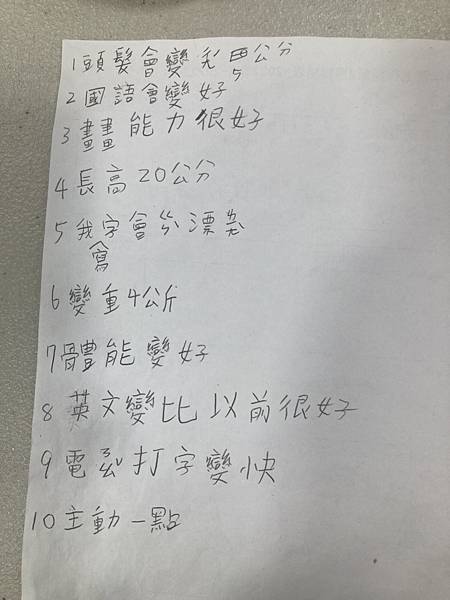 1 頭髮會變長5公分
2 國語會變好
3 畫畫能力很好
4 長高20公分
5 我寫字會變漂亮
6 變重4公斤
7 體能變好
8 英文變比以前很好
9 電腦打字變快
10 主動一點